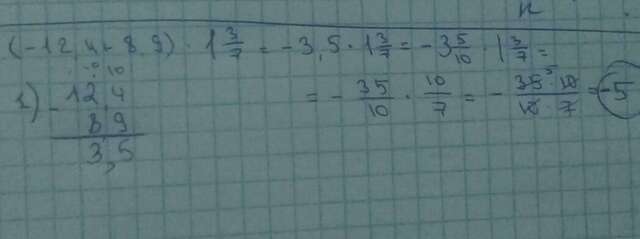 n
(-12,4+8,9) · 1 3/7 = -3,5 · 1 3/7 = -3 5/10 · 1 3/7 =
= - 35/10 · 10/7 = - 35 5 · 10 / 10 · 7 = -5
1) - 12,4
8 9
3,5